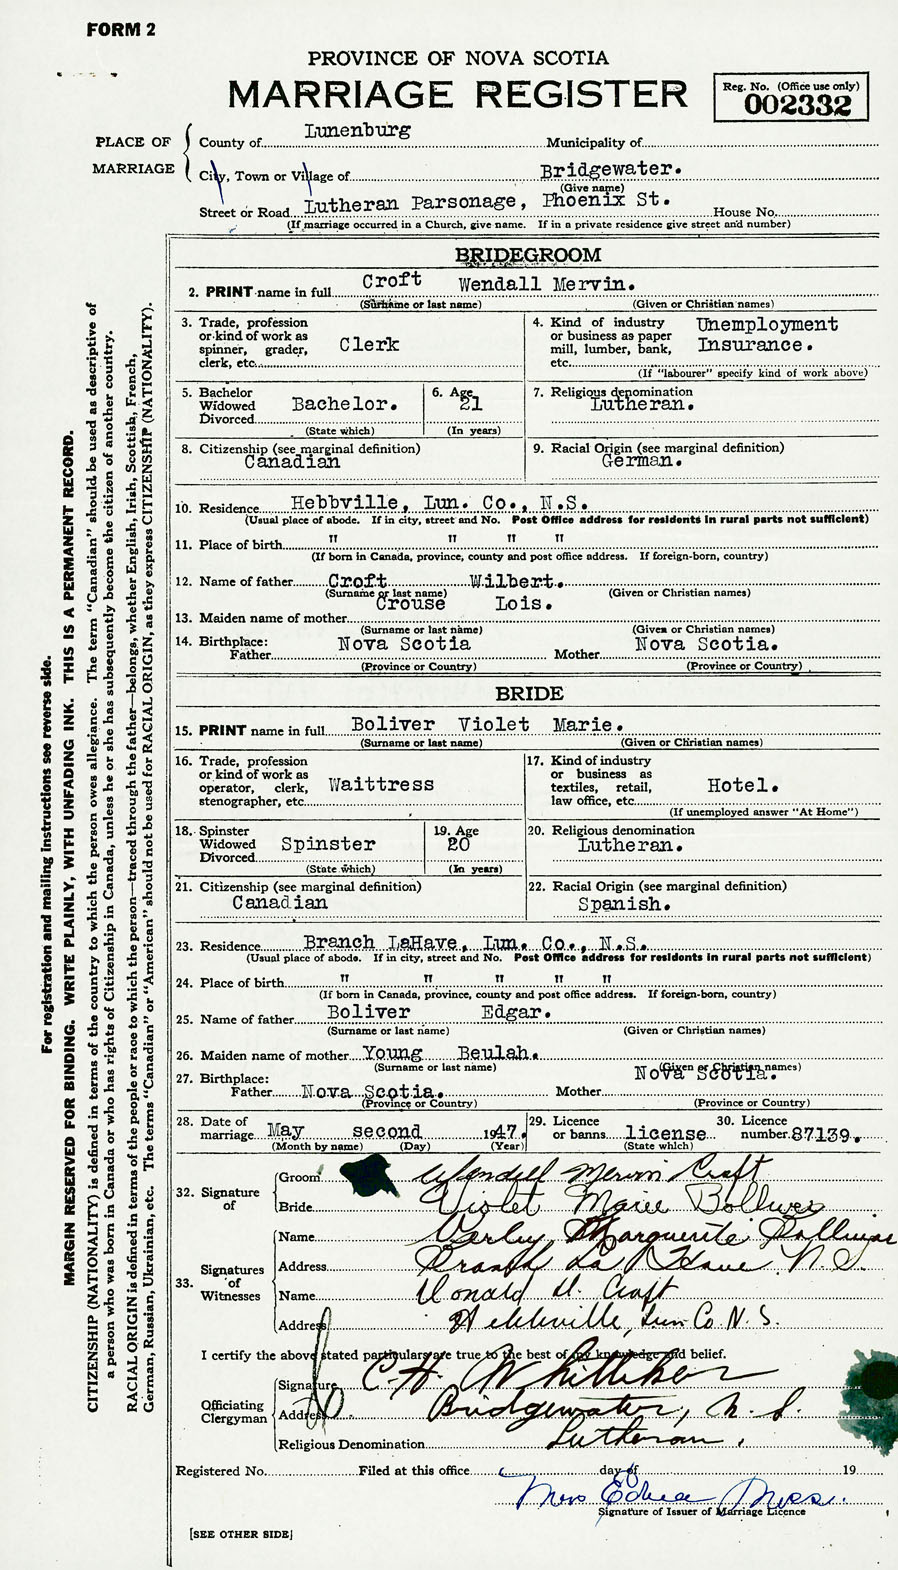 FORM 2
PROVINCE OF NOVA SCOTIA
MARRIAGE REGISTER
Reg. No. (Office use only)
002332
PLACE OF MARRIAGE
County of Lunenburg Municipality of
City, Town or Village of Bridgewater.
(Give name)
Street or Road Lutheran Parsonage, Phoenix St. House No.
(If marriage occurred in a Church, give name. If in a private residence give street and number)
BRIDEGROOM
2. PRINT name in full Croft Wendall Mervin.
(Surname or last name) (Given or Christian names)
3. Trade, profession or kind of work as spinner, grader, clerk, etc. Clerk
4. Kind of industry or business as paper mill, lumber, bank, etc. Unemployment Insurance.
(If "labourer" specify kind of work above)
5. Bachelor Widowed Divorced Bachelor.
(State which)
6. Age 21
(In years)
7. Religious denomination
Lutheran.
8. Citizenship (see marginal definition)
Canadian
9. Racial Origin (see marginal definition)
German.
10. Residence Hebbville, Lun. Co., N.S.
(Usual place of abode. If in city, street and No. Post Office address for residents in rural parts not sufficient)
11. Place of birth " " " "
(If born in Canada, province, county and post office address. If foreign-born, country)
12. Name of father Croft Wilbert.
(Surname or last name) (Given or Christian names)
13. Maiden name of mother Crouse Lois.
(Surname or last name) (Given or Christian names)
14. Birthplace: Father Nova Scotia Mother Nova Scotia.
(Province or Country) (Province or Country)
BRIDE
15. PRINT name in full Boliver Violet Marie.
(Surname or last name) (Given or Christian names)
16. Trade, profession or kind of work as operator, clerk, stenographer, etc. Waittress
17. Kind of industry or business as textiles, retail, law office, etc. Hotel.
(If unemployed answer "At Home")
18. Spinster Widowed Divorced Spinster
(State which)
19. Age 20
(In years)
20. Religious denomination
Lutheran.
21. Citizenship (see marginal definition)
Canadian
22. Racial Origin (see marginal definition)
Spanish.
23. Residence Branch LaHave, Lun. Co., N.S.
(Usual place of abode. If in city, street and No. Post Office address for residents in rural parts not sufficient)
24. Place of birth " " " " "
(If born in Canada, province, county and post office address. If foreign-born, country)
25. Name of father Boliver Edgar.
(Surname or last name) (Given or Christian names)
26. Maiden name of mother Young Beulah.
(Surname or last name) (Given or Christian names)
27. Birthplace: Father Nova Scotia. Mother Nova Scotia.
(Province or Country) (Province or Country)
28. Date of marriage May second 1947.
(Month by name) (Day) (Year)
29. Licence or banns license
(State which)
30. Licence number 87139.
32. Signature of
Groom Wendell Mervin Croft
Bride Violet Marie Boliver
33. Signatures of Witnesses
Name Verley Marguerite Bolliver
Address Branch La Have N. S.
Name Donald H. Croft
Address Hebbville, Lun Co N. S.
I certify the above stated particulars are true to the best of my knowledge and belief.
Officiating Clergyman
Signature C. H. Whitteker
Address Bridgewater, N. S.
Religious Denomination Lutheran.
Registered No. Filed at this office day of 19
Mrs Edna
Signature of Issuer of Marriage Licence
[SEE OTHER SIDE]
For registration and mailing instructions see reverse side.
MARGIN RESERVED FOR BINDING. WRITE PLAINLY, WITH UNFADING INK. THIS IS A PERMANENT RECORD.
CITIZENSHIP (NATIONALITY) is defined in terms of the country to which the person owes allegiance. The term "Canadian" should be used as descriptive of
a person who was born in Canada or who has rights of Citizenship in Canada, unless he or she has subsequently become the citizen of another country.
RACIAL ORIGIN is defined in terms of the people or race to which the person—traced through the father—belongs, whether English, Irish, Scottish, French,
German, Russian, Ukrainian, etc. The terms "Canadian" or "American" should not be used for RACIAL ORIGIN, as they express CITIZENSHIP (NATIONALITY).